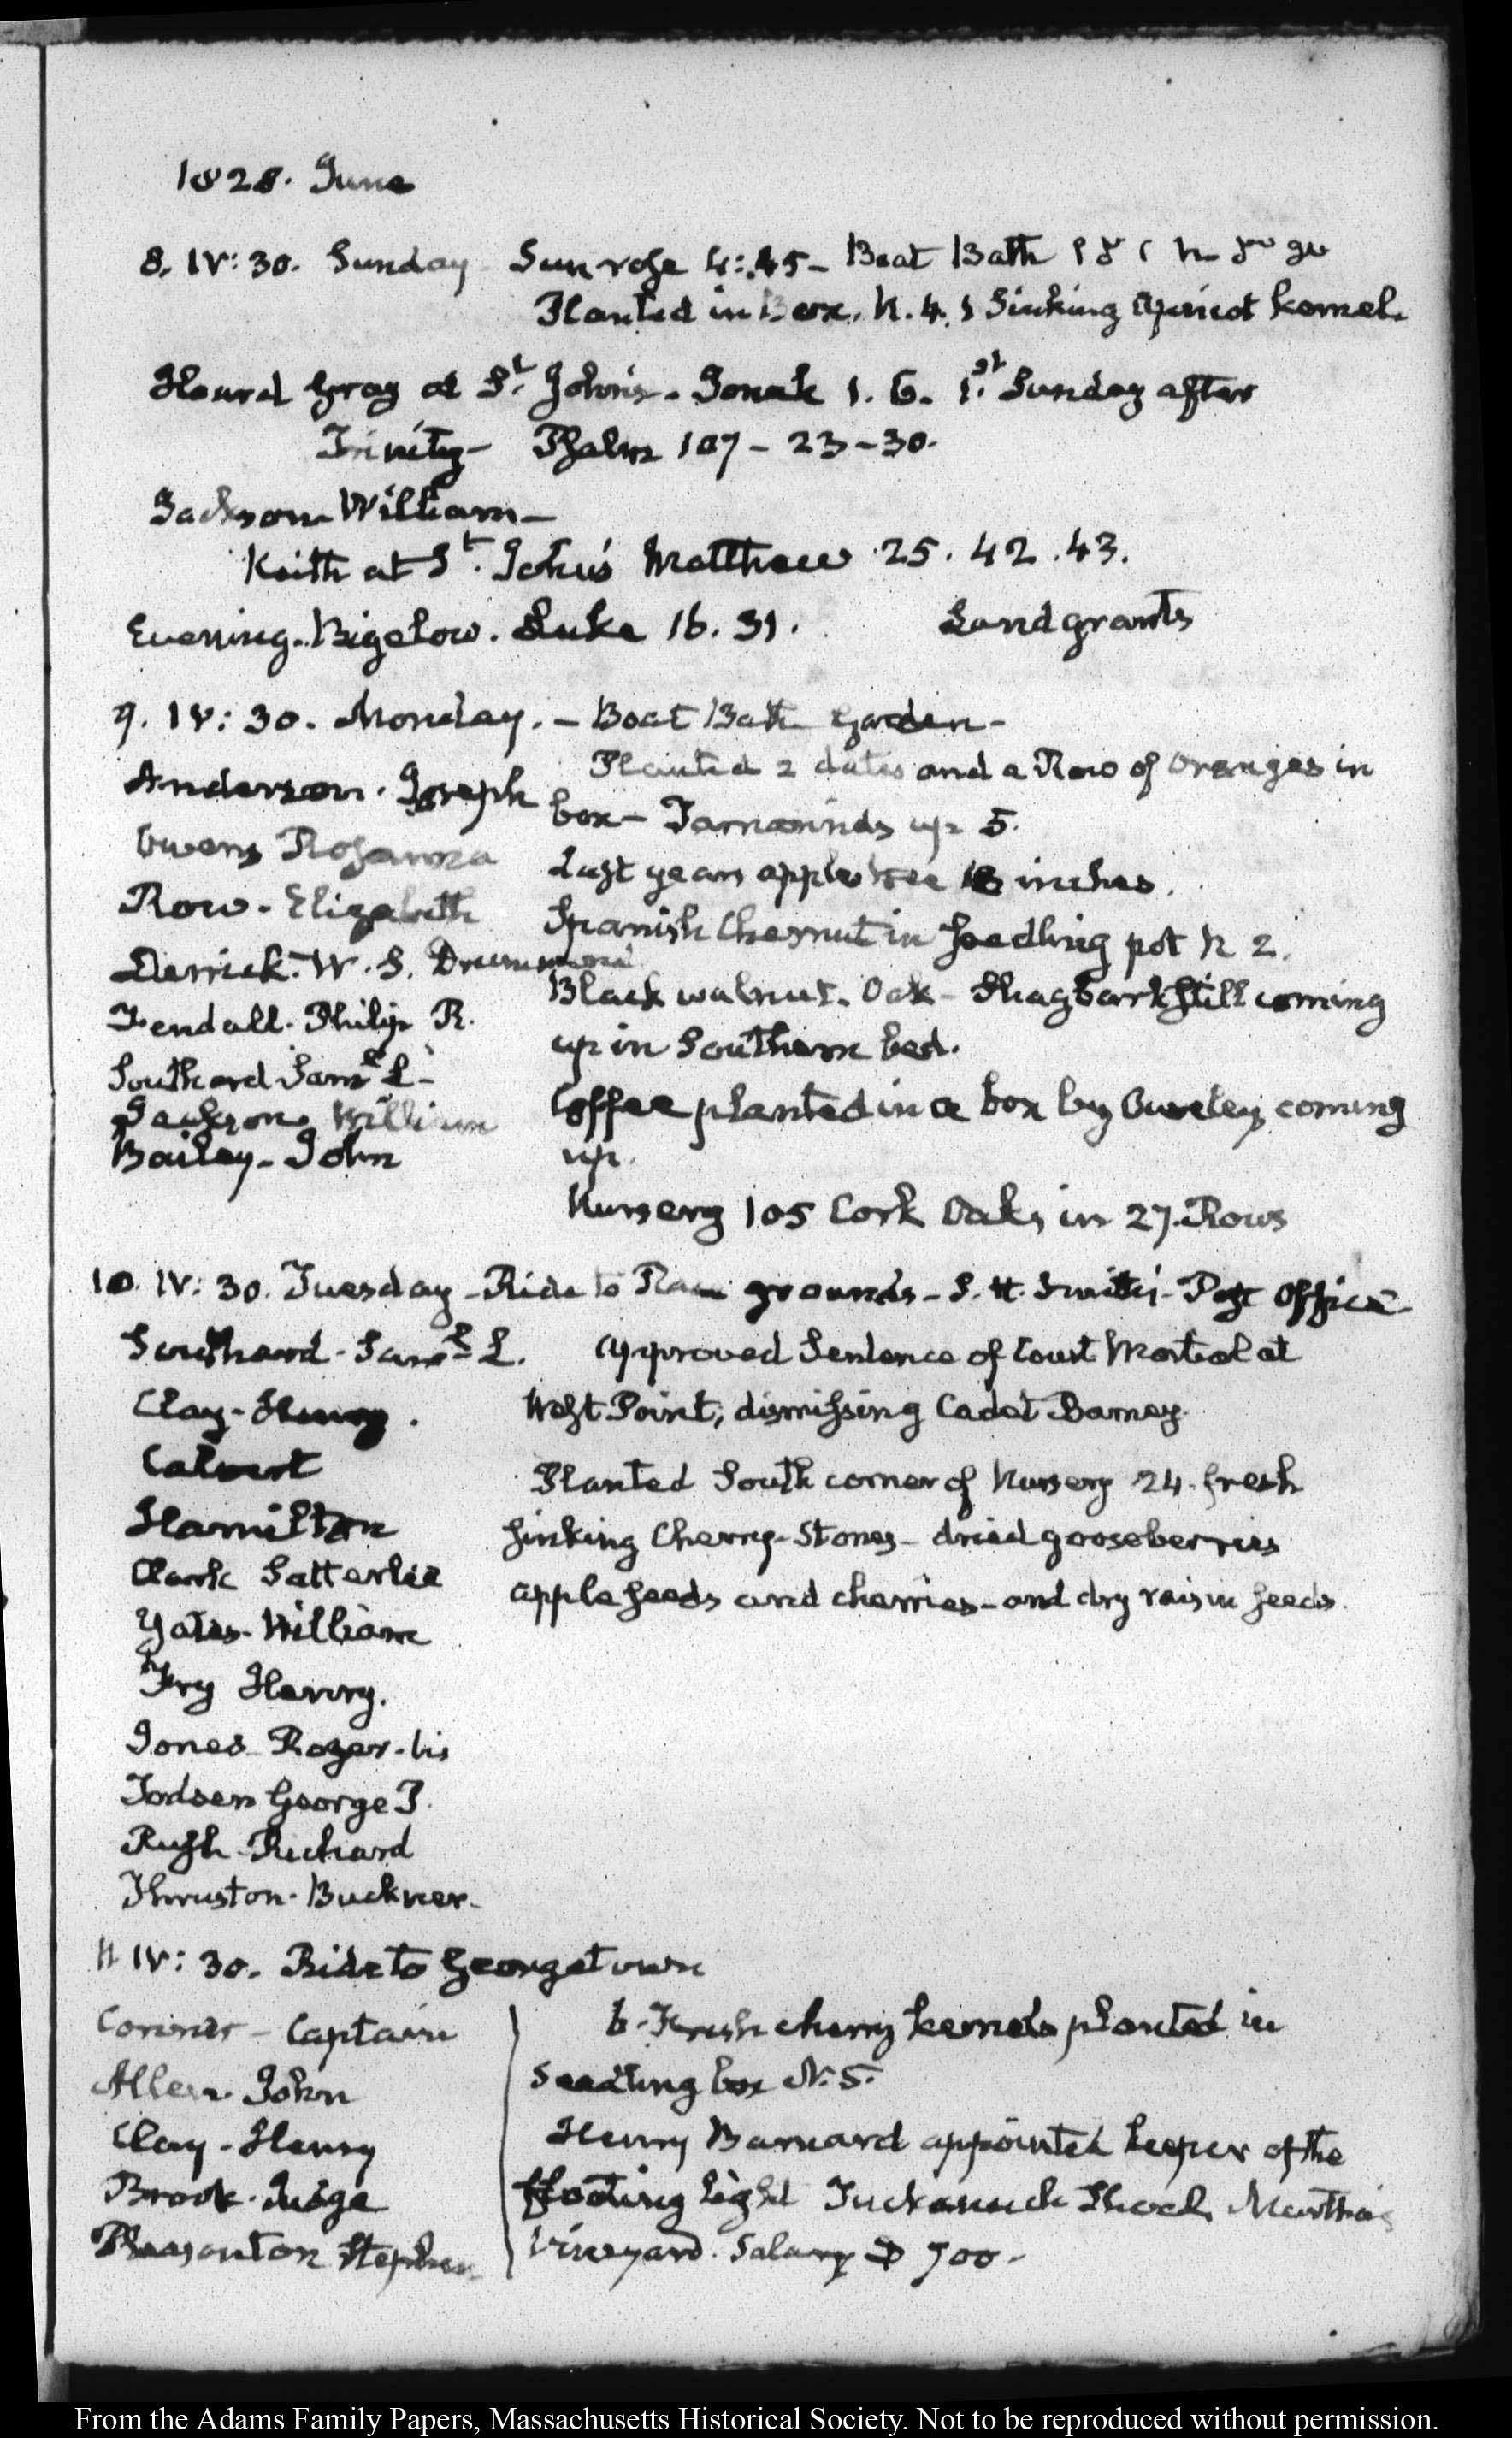 1828. June
8. IV: 30. Sunday Sun rose 4:45 - Boat Bath
Planted in Box. N. 4. 1 Sinking Apricot kernel.
Heard Gray at St. John's. Jonah 1. 6. 1st. Sunday after
Trinity - Psalm 107 - 23 - 30.
Jackson William -
Keith at St. John's Matthew 25. 42. 43.
Evening. Bigelow. Luke 16. 31. Land grants
9. IV: 30. Monday. - Boat Bath Garden -
Planted 2 dates and a Row of Oranges in
Anderson. Joseph
box - Tamarinds up 5.
Owens Rosanna
Last years apple tree 18 inches.
Row - Elizabeth
Spanish Chesnut in seedling pot N 2.
Derrick. W. S. Drummond
Black walnut. Oak - Shagbark still coming
Fendall. Philip R.
up in Southern bed.
Southard Saml. L -
Coffee planted in a box by Ouseley coming
Jackson William
up.
Bailey - John
Nursery 105 Cork Oaks in 27. Rows
10. IV: 30. Tuesday - Ride to Race grounds - S. H. Smith's - Post Office
Southard - Saml. L. Approved Sentence of Court Martial at
Clay - Henry. West Point, dismissing Cadet Barney.
Calvert
Planted South corner of Nursery 24. fresh
Hamilton
sinking Cherry-Stones - dried gooseberries
Clark Satterlee
apple seeds and cherries - and dry raisin seeds.
Yates - William
Fry Henry.
Jones Roger - bis
Todsen George P.
Rush - Richard
Thruston - Buckner -
11 IV: 30. Ride to Georgetown
Conner - Captain 6 - Fresh cherry kernels planted in
Allen John seedling box N. 5.
Clay - Henry Henry Barnard appointed keeper of the
Brook - Judge floating light Tuckanuck Shoal, Martha's
Pleasonton Stephen Vineyard. Salary D 700 -
From the Adams Family Papers, Massachusetts Historical Society. Not to be reproduced without permission.